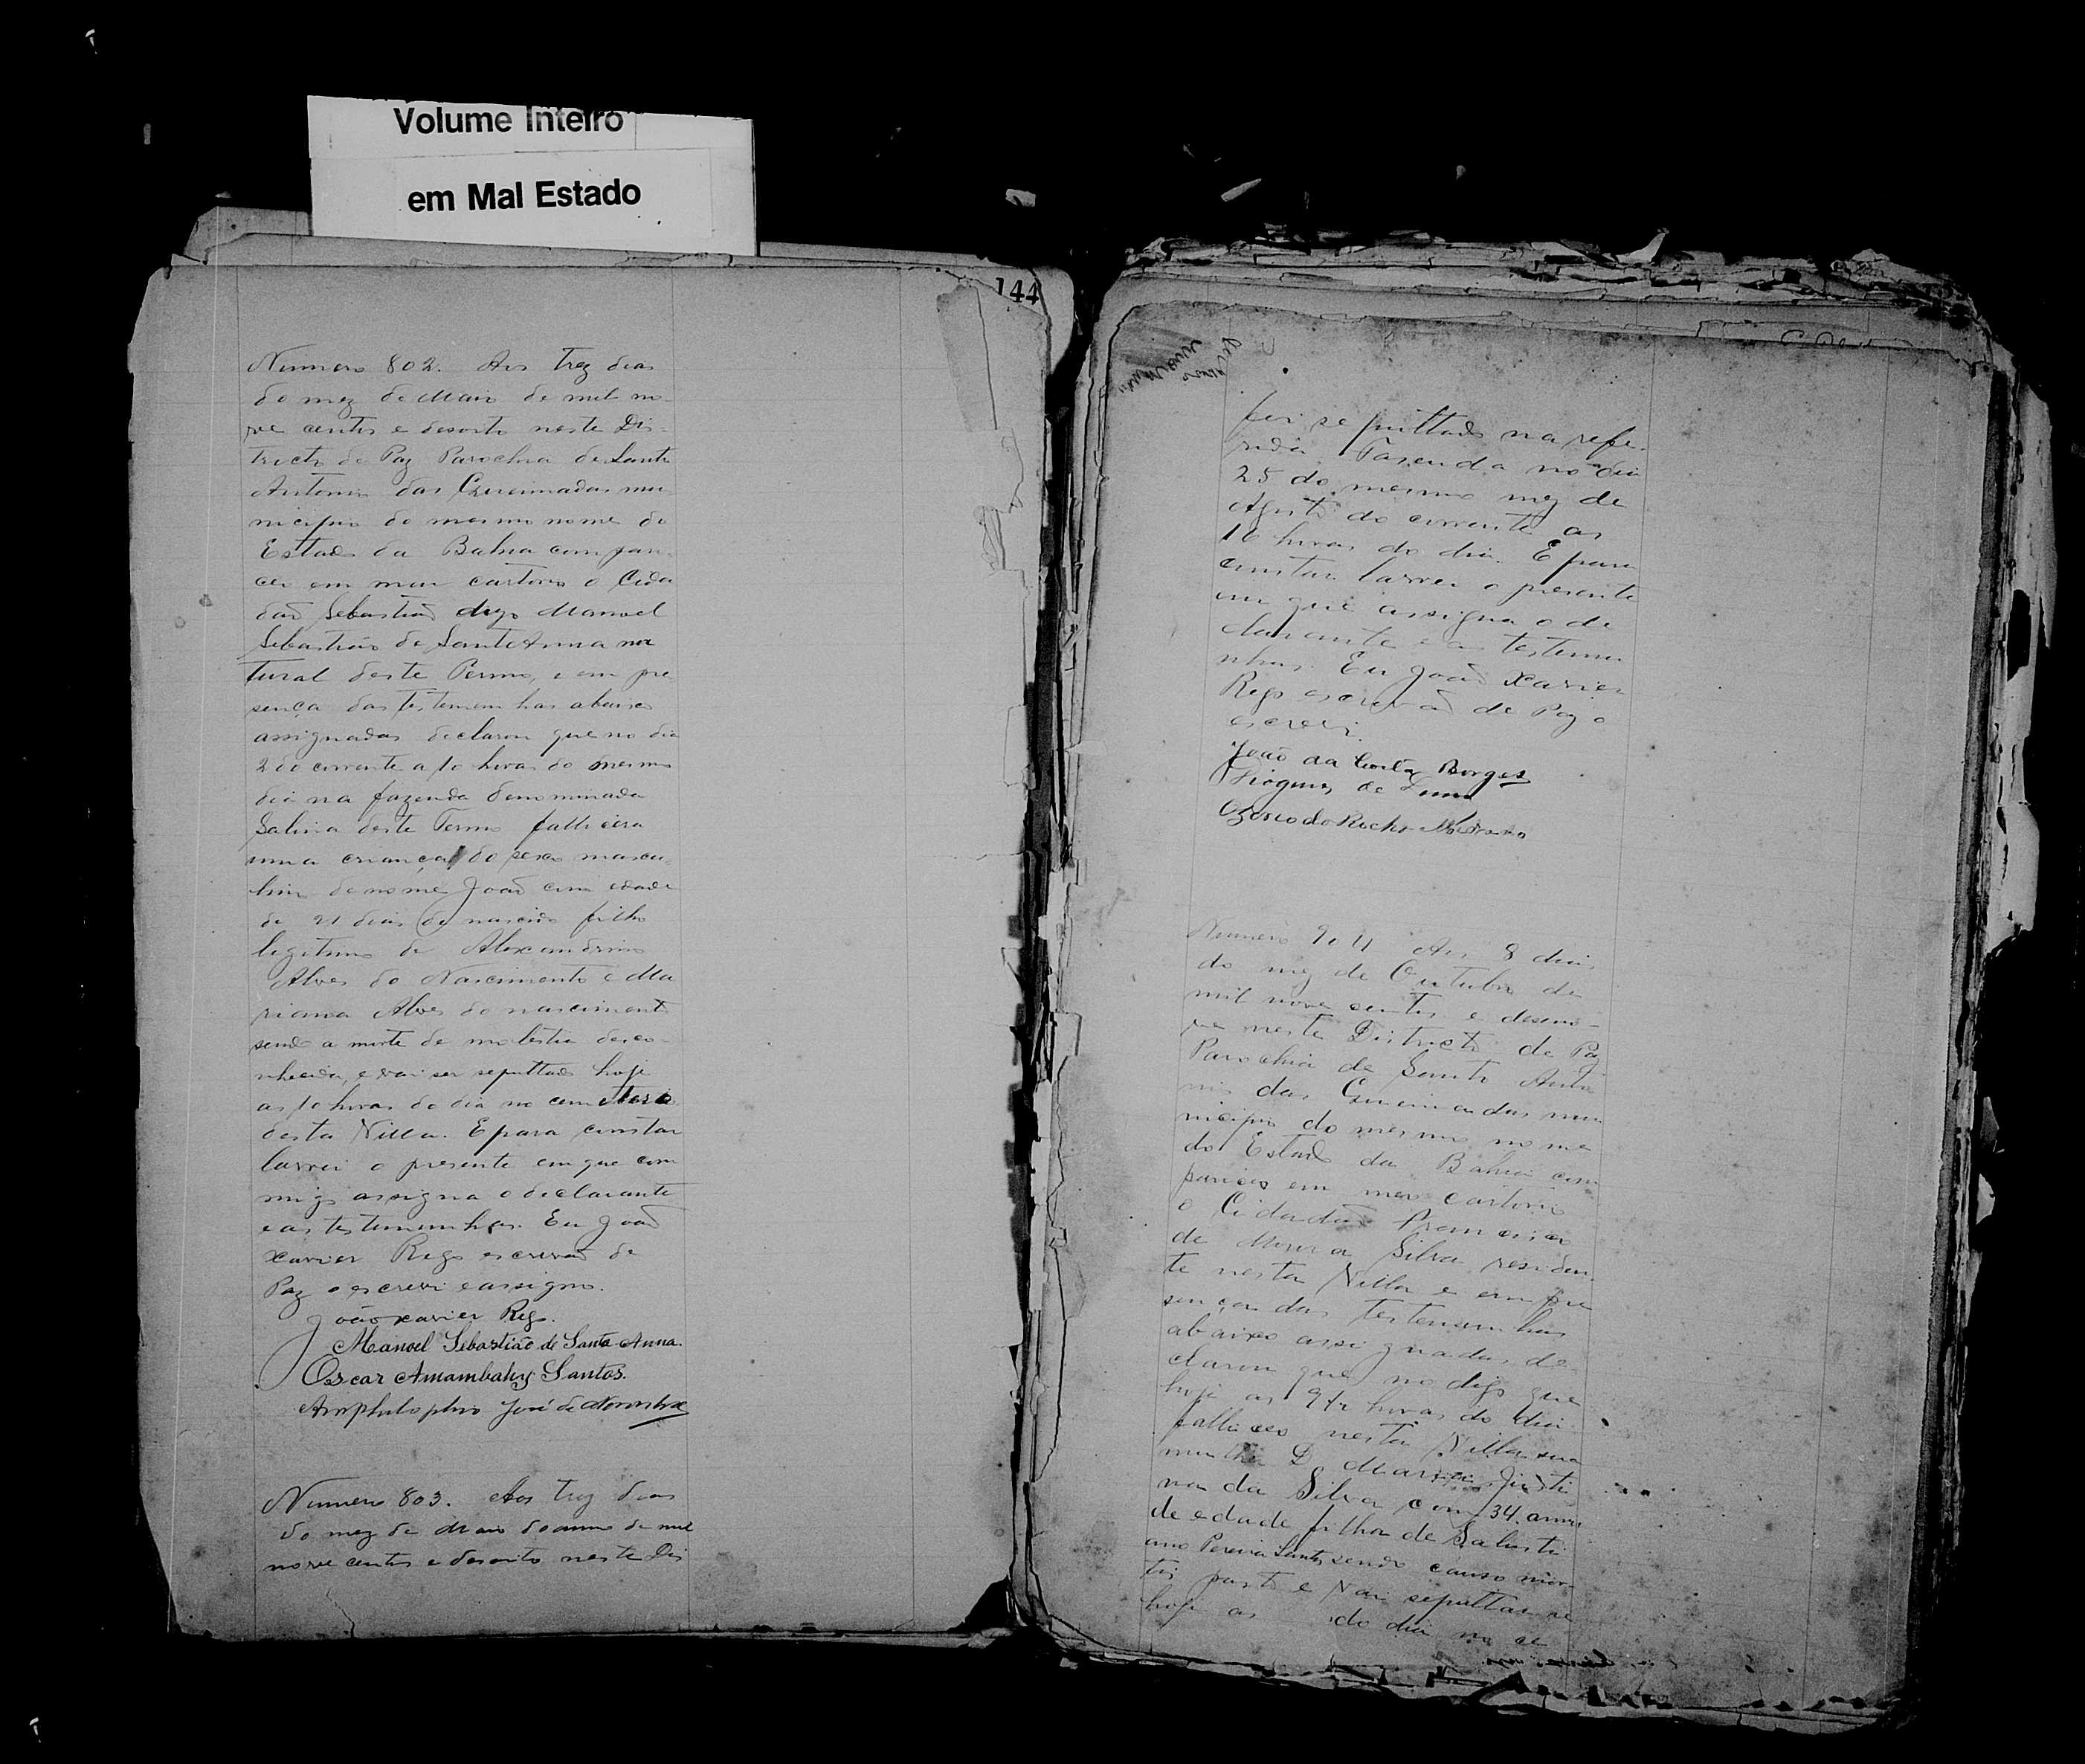 Volume Inteiro
em Mal Estado
144
Numero 802. Aos trez dias
do mez de Maio de mil no-
ve centos e desoito neste Dis-
tricto de Paz Parochia de Santo
Antonio das Queimadas mu
nicipio do mesmo nome do
Estado da Bahia compare
ceu em meu cartorio o Cida
dão Sebastião digo Manoel
Sebastião de Sant'Anna na
tural deste Termo, e em pre
sença das testemunhas abaixo
assignadas declarou que no dia
2 do corrente a 10 horas do mesmo
dia na fazenda denominada
Salina deste Termo fallecera
uma criança do sexo mascu-
lino de nome João com edade
de 21 dias de nascido filho
legitimo de Alexandrino
Alves do Nascimento e Ma
riana Alves do nascimento
sendo a morte de molestia desco-
nhecida, e vai ser sepultado hoje
as 10 horas do dia no cemiterio
desta Villa. E para constar
lavrei o presente em que com
migo assigna o declarante
e as testemunhas. Eu João
Xavier Rego escrivão de
Paz o escrevi e assigno.
João Xavier Rego.
Manoel Sebastião de Santa Anna.
Oscar Amambahy Santos.
Amphilophio José de
Numero 803. Aos trez dias
do mez de Maio do anno de mil
nove centos e desoito neste Dis
foi sepultado na refe-
rida Fazenda no dia
25 do mesmo mez de
Agosto do corrente as
16 horas do dia. E para
constar lavrei o presente
em que assigna o de
clarante e as testemu
nhas. Eu João Xavier
Rego escrivão de Paz o
escrevi.
João da Costa Borges
de
da Rocha
Numero 904 Aos 8 dias
do mez de Outubro de
mil nove centos e deseno-
ve neste Districto de Paz
Parochia de Santo Anto
nio das Queimadas mu
nicipio do mesmo nome
do Estado da Bahia com
pareceo em meu cartorio
o Cidadão Francisco
de Moura Silva residen
te nesta Villa e em pre
sença das testemunhas
abaixo assignadas de
clarou que no digo que
hoje as 9 1/2 horas do dia
falleceo nesta Villa sua
mulher D. Maria Justi
na da Silva com 34 annos
de edade filha de Salusti
ano Pereira Santos sendo causa mor-
tis parto e vai sepultar se
hoje as do dia no ce